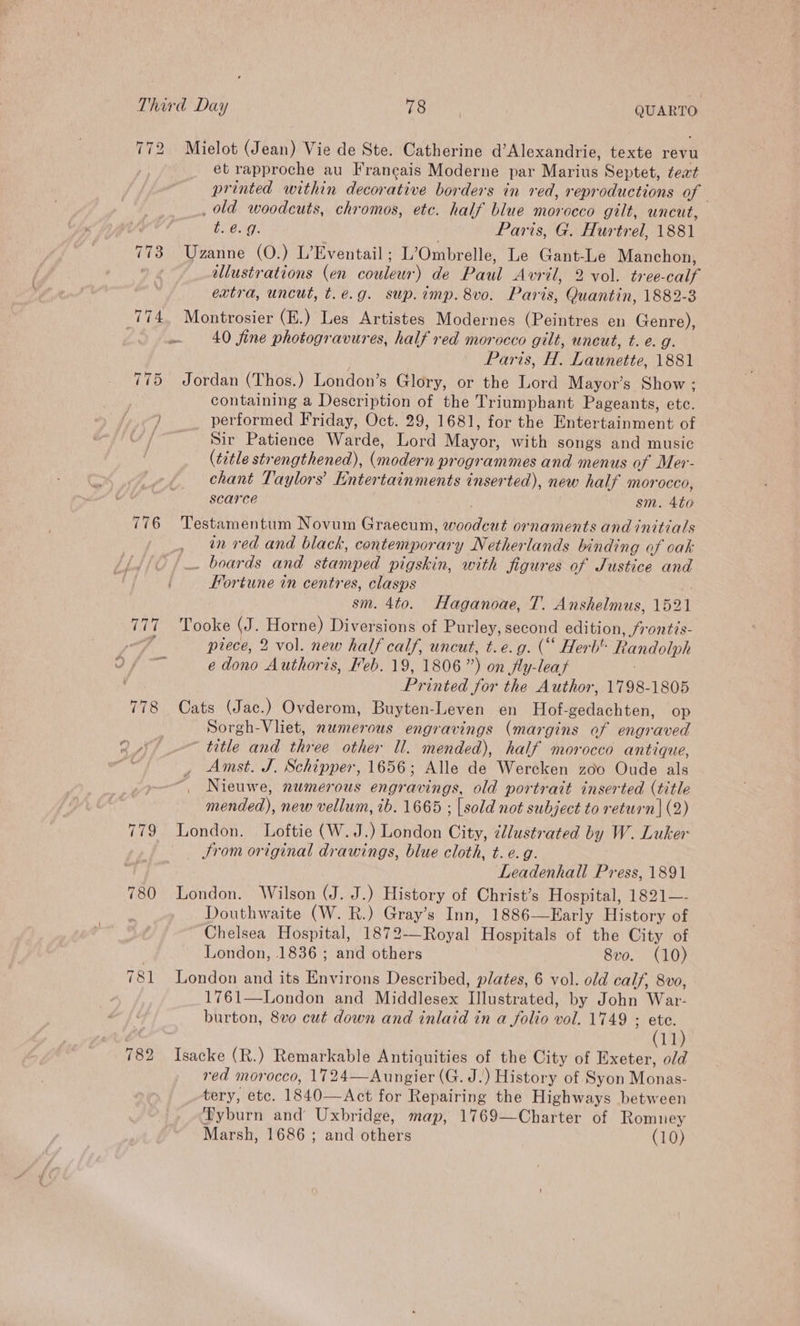 Third Day 78 QUARTO
772 Mielot (Jean) Vie de Ste. Catherine d'Alexandrie, texte revu
et rapproche au Français Moderne par Marius Septet, text
printed within decorative borders in red, reproductions of
old woodcuts, chromos, etc. half blue morocco gilt, uncut,
t. e. g. Paris, G. Hurtrel, 1881
773 Uzanne (O.) L'Eventail; L'Ombrelle, Le Gant-Le Manchon,
illustrations (en couleur) de Paul Avril, 2 vol. tree-calf
extra, uncut, t. e. g. sup. imp. 8vo. Paris, Quantin, 1882-3
774 Montrosier (E.) Les Artistes Modernes (Peintres en Genre),
40 fine photogravures, half red morocco gilt, uncut, t. e. g.
Paris, H. Launette, 1881
775 Jordan (Thos.) London's Glory, or the Lord Mayor's Show;
containing a Description of the Triumphant Pageants, etc.
performed Friday, Oct. 29, 1681, for the Entertainment of
Sir Patience Warde, Lord Mayor, with songs and music
(title strengthened), (modern programmes and menus of Mer-
chant Taylors' Entertainments inserted), new half morocco,
scarce sm. 4to
776 Testamentum Novum Graecum, woodcut ornaments and initials
in red and black, contemporary Netherlands binding of oak
boards and stamped pigskin, with figures of Justice and
Fortune in centres, clasps
sm. 4to. Haganoae, T. Anshelmus, 1521
777 Tooke (J. Horne) Diversions of Purley, second edition, frontis-
piece, 2 vol. new half calf, uncut, t. e. g. ("Herbt. Randolph
e dono Authoris, Feb. 19, 1806") on fly-leaf
Printed for the Author, 1798-1805
778 Cats (Jac.) Ovderom, Buyten-Leven en Hof-gedachten, op
Sorgh-Vliet, numerous engravings (margins of engraved
title and three other ll. mended), half morocco antique,
Amst. J. Schipper, 1656; Alle de Wercken zoo Oude als
Nieuwe, numerous engravings, old portrait inserted (title
mended), new vellum, ib. 1665; [sold not subject to return] (2)
779 London. Loftie (W. J.) London City, illustrated by W. Luker
from original drawings, blue cloth, t. e. g.
Leadenhall Press, 1891
780 London. Wilson (J. J.) History of Christ's Hospital, 1821—
Douthwaite (W. R.) Gray's Inn, 1886—Early History of
Chelsea Hospital, 1872—Royal Hospitals of the City of
London, 1836; and others 8vo. (10)
781 London and its Environs Described, plates, 6 vol. old calf, 8vo,
1761—London and Middlesex Illustrated, by John War-
burton, 8vo cut down and inlaid in a folio vol. 1749; etc.
(11)
782 Isacke (R.) Remarkable Antiquities of the City of Exeter, old
red morocco, 1724—Aungier (G. J.) History of Syon Monas-
tery, etc. 1840—Act for Repairing the Highways between
Tyburn and Uxbridge, map, 1769—Charter of Romney
Marsh, 1686; and others (10)